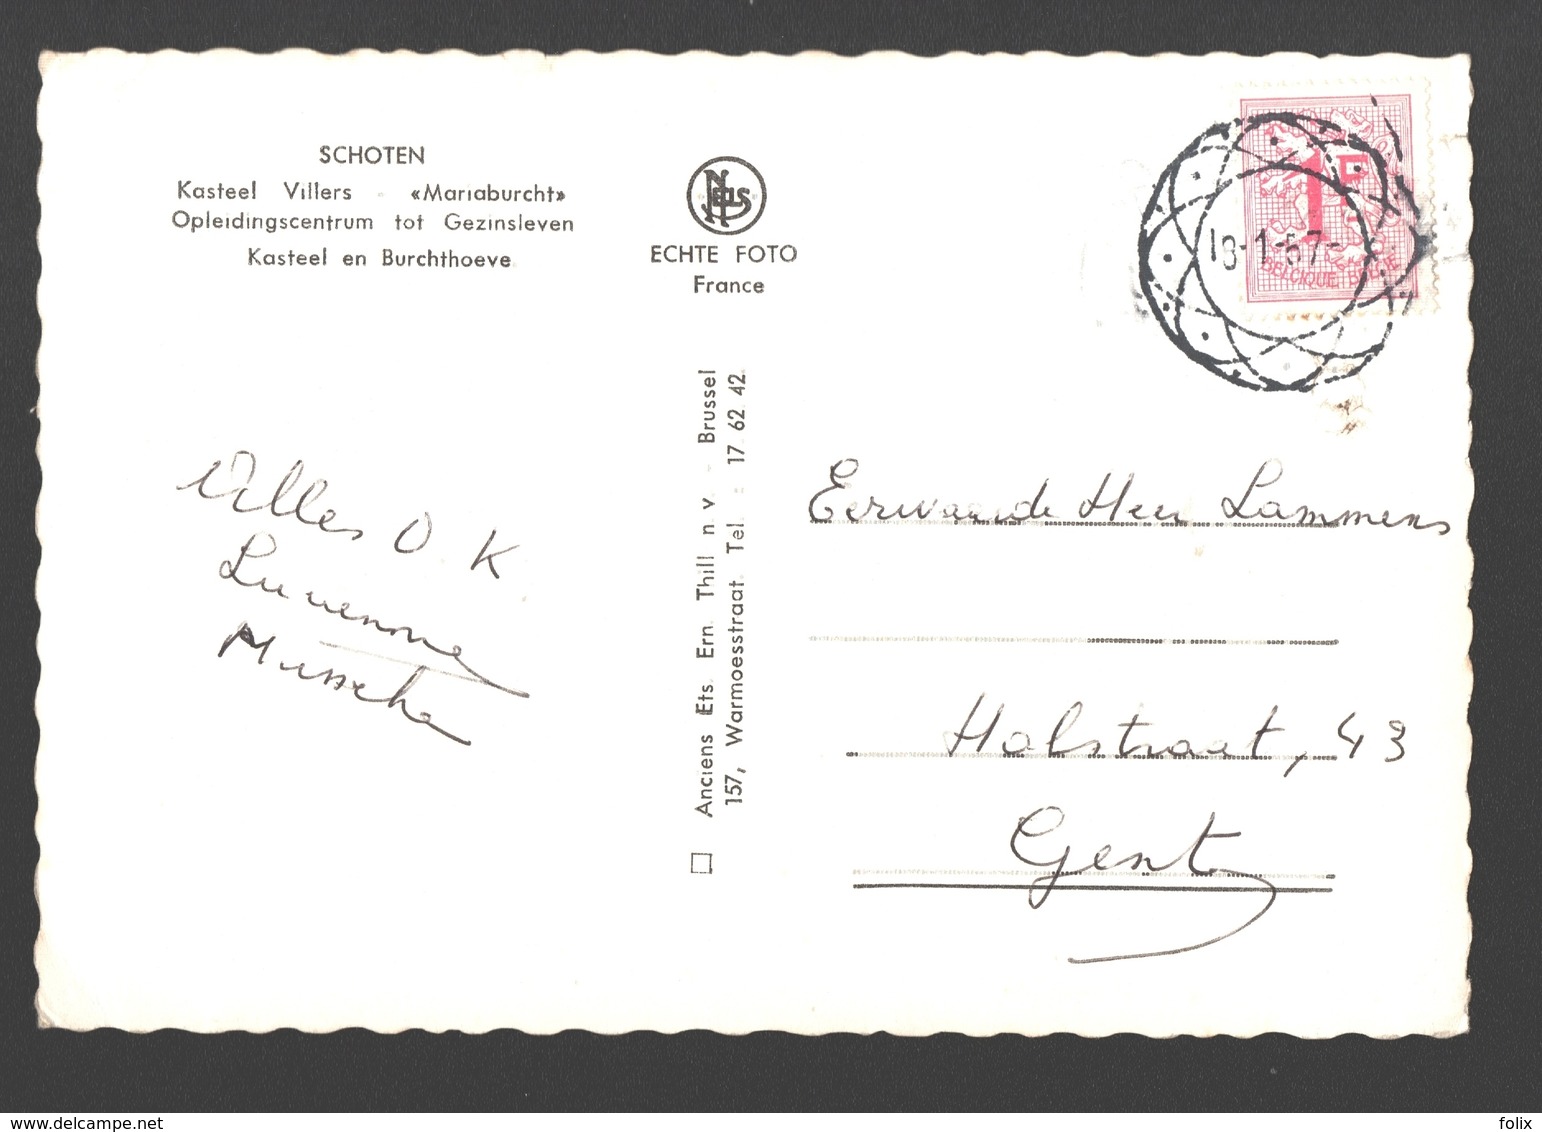 SCHOTEN
Kasteel Villers - «Mariaburcht»
Opleidingscentrum tot Gezinsleven
Kasteel en Burchthoeve
NELS
ECHTE FOTO
France
1F
BELGIQUE BELGIE
18-1-67-
Anciens Ets. Ern. Thill n. v. - Brussel
157, Warmoesstraat. Tel. : 17 62 42
Alles O K
Mussche
Eerwaarde Heer Lammens
Holstraat, 43
Gent
Uploaded to www.delcampe.net
folix